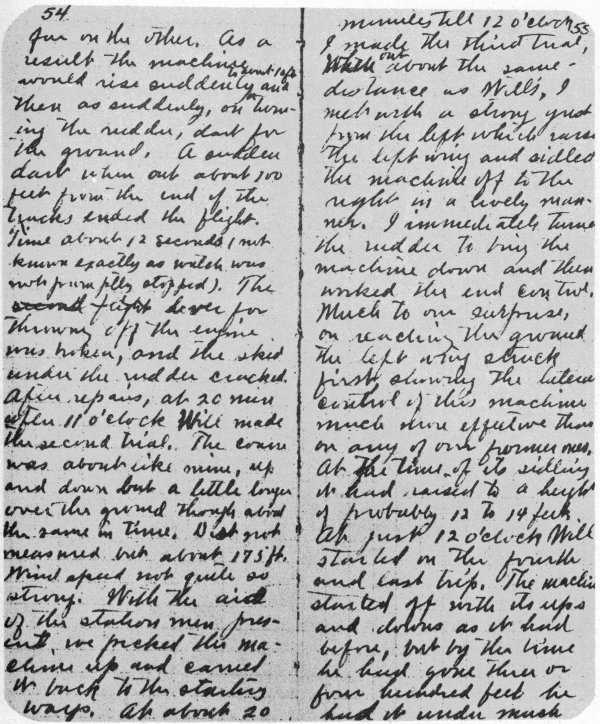 54
far on the other. As a
result the machine
to about 10 ft.
would rise suddenly and
then as suddenly, on turn-
ing the rudder, dart for
the ground. A sudden
dart when out about 100
feet from the end of the
tracks ended the flight.
Time about 12 seconds (not
known exactly as watch was
not promptly stopped). The
flight lever for
throwing off the engine
was broken, and the skid
under the rudder cracked.
After repairs, at 20 min
after 11 o'clock Will made
the second trial. The course
was about like mine, up
and down but a little longer
over the ground though about
the same in time. Dist not
measured but about 175 ft.
Wind speed not quite so
strong. With the aid
of the station men pres-
ent, we picked the ma-
chine up and carried
it back to the starting
ways. At about 20
55
minutes till 12 o'clock
I made the third trial.
When out about the same
distance as Will's, I
met with a strong gust
from the left which raised
the left wing and sidled
the machine off to the
right in a lively man-
ner. I immediately turned
the rudder to bring the
machine down and then
worked the end control.
Much to our surprise,
on reaching the ground
the left wing struck
first, showing the lateral
control of this machine
much more effective than
on any of our former ones.
At the time of its sidling
it had raised to a height
of probably 12 to 14 feet.
At just 12 o'clock Will
started on the fourth
and last trip. The machine
started off with its ups
and downs as it had
before, but by the time
he had gone three or
four hundred feet he
had it under much